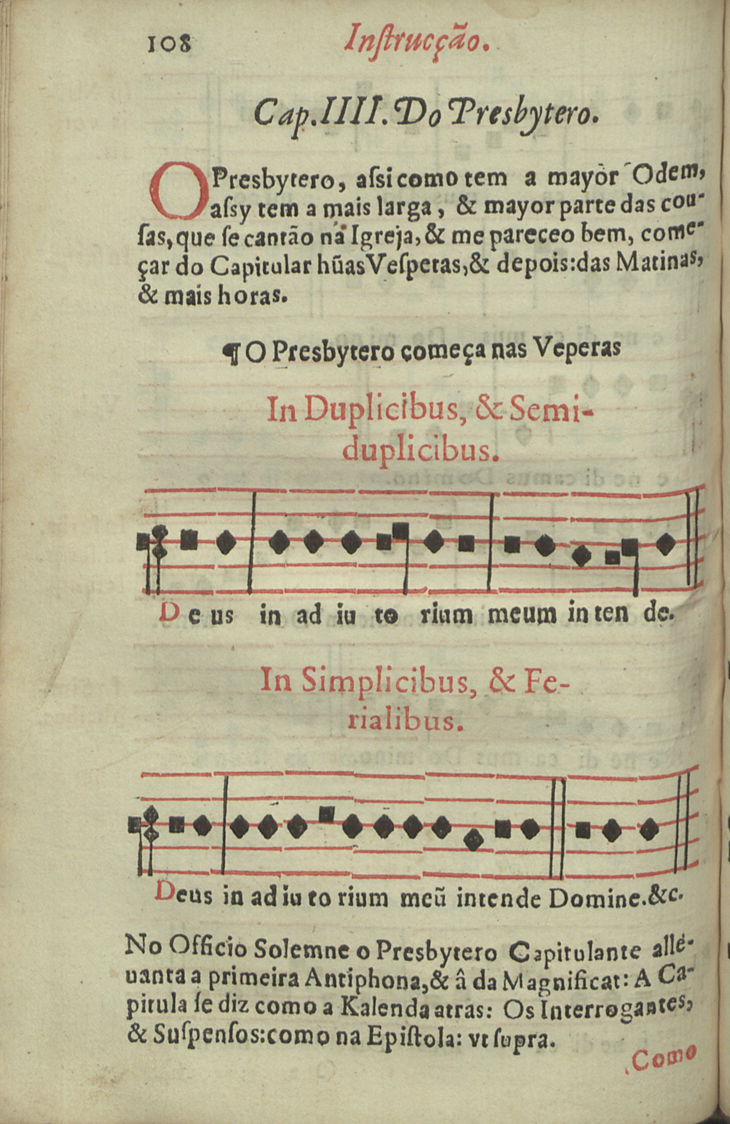 108
Inſtrucção.
Cap.IIII. Do Presbytero.
O Presbytero, aſsi como tem a mayòr Odem,
aſsy tem a mais larga, & mayor parte das cou-
ſas, que ſe cantão na Igreja, & me pareceo bem, come-
çar do Capitular hũas Veſperas, & depois: das Matinas,
& mais horas.
¶ O Presbytero começa nas Veperas
In Duplicibus, & Semi-
duplicibus.
De us in ad iu to rium meum in ten de.
In Simplicibus, & Fe-
rialibus.
Deus in ad iu to rium meũ intende Domine.&c.
No Officio Solemne o Presbytero Capitulante allé-
uanta a primeira Antiphona, & â da Magnificat: A Ca-
pitula ſe diz como a Kalenda atras: Os Interrogantes,
& Suſpenſos: como na Epiſtola: vt ſupra.
Como